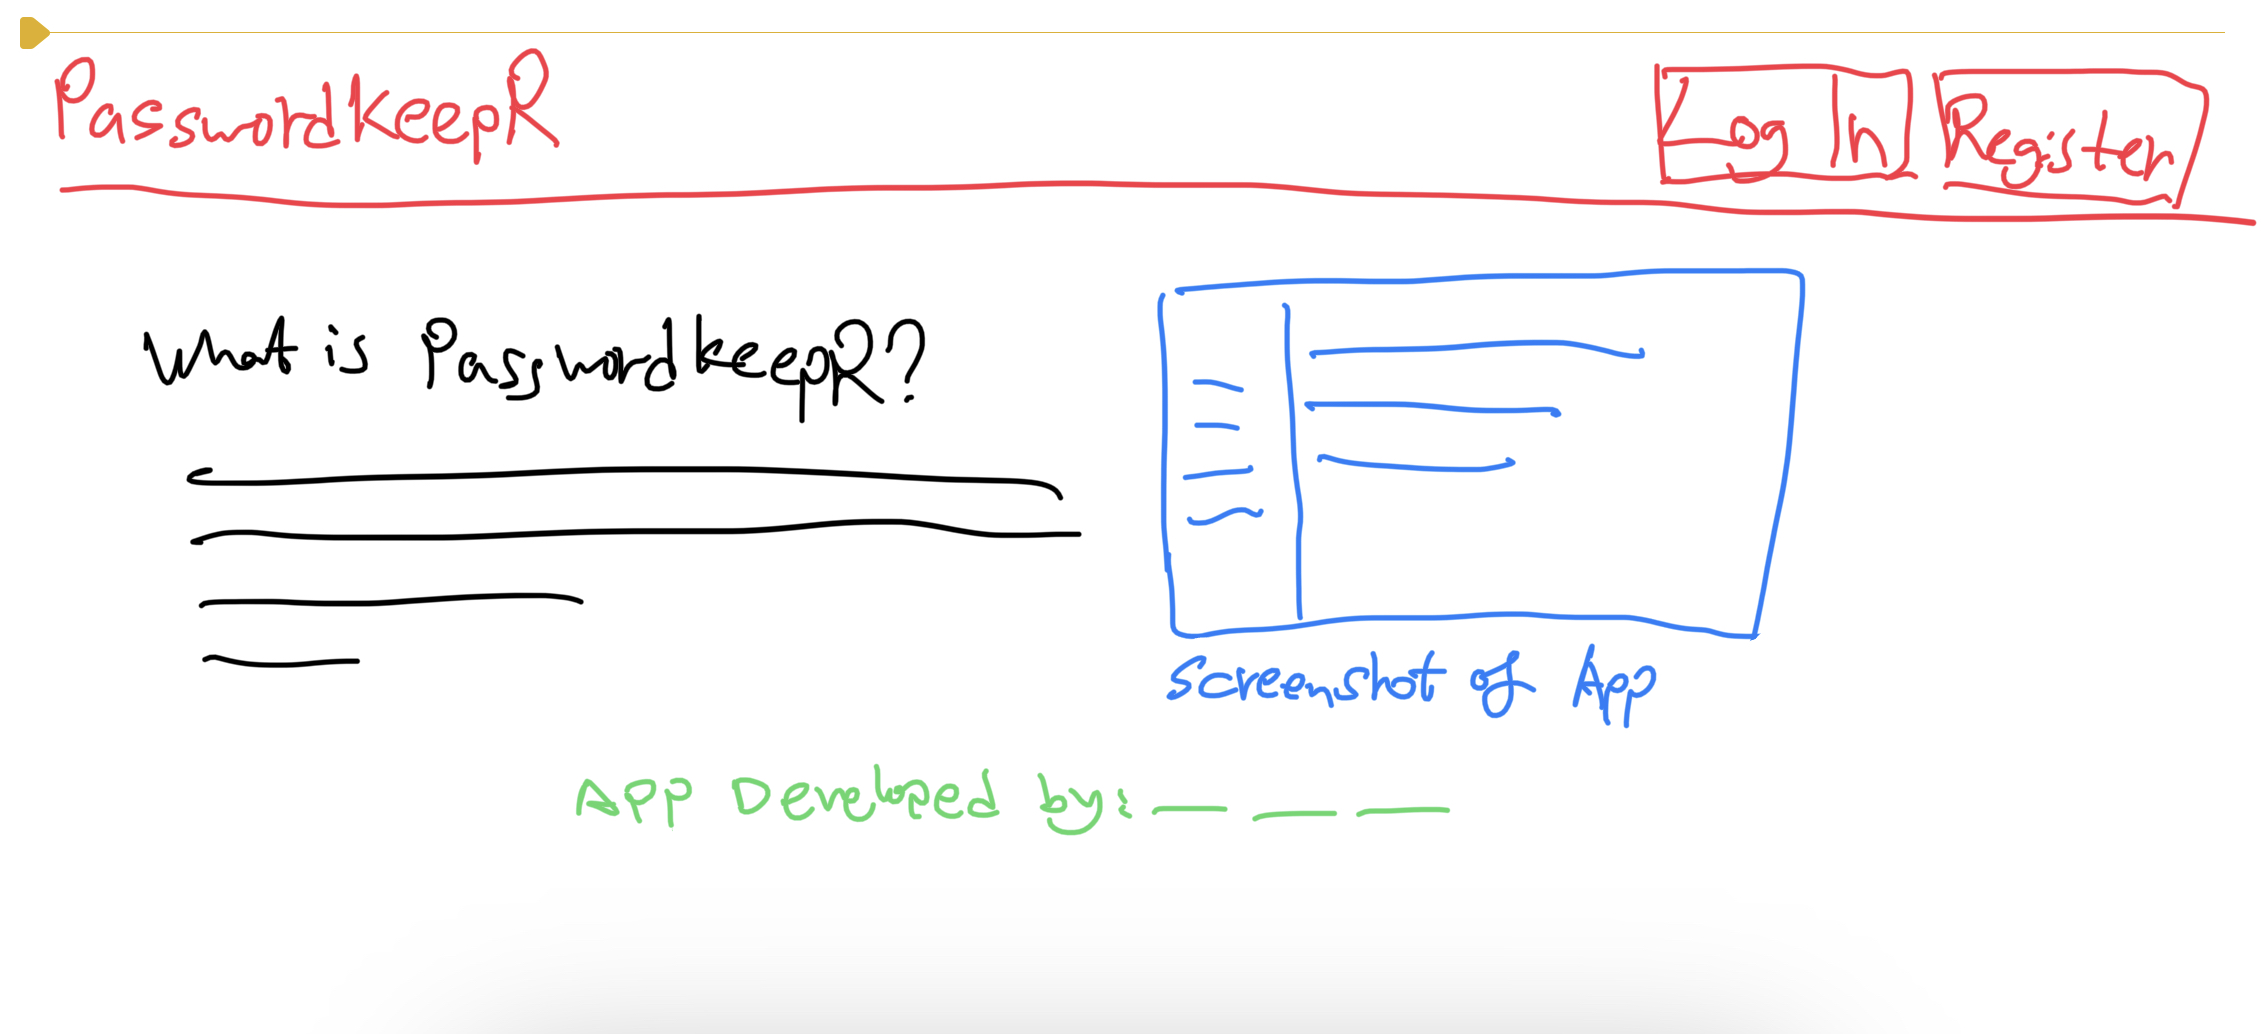 PasswordkeepR
Log In
Register
What is PasswordkeepR?
Screenshot of App
App Developed by: